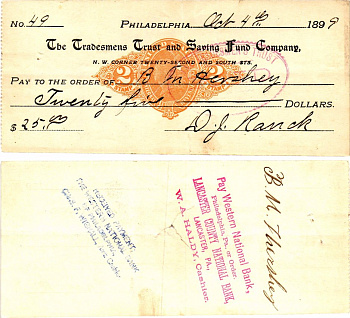 No. 49 Philadelphia, Oct 4th 1899
The Tradesmens Trust and Saving Fund Company,
N. W. CORNER TWENTY-SECOND AND SOUTH STS.
PAY TO THE ORDER OF B M Hershey
Twenty five DOLLARS.
$ 25.00 D. J. Ranck
Pay Western National Bank,
Philadelphia, Pa. or Order.
LANCASTER COUNTY NATIONAL BANK,
LANCASTER, PA.
W. A. HALDY, Cashier.
B. M. Hershey